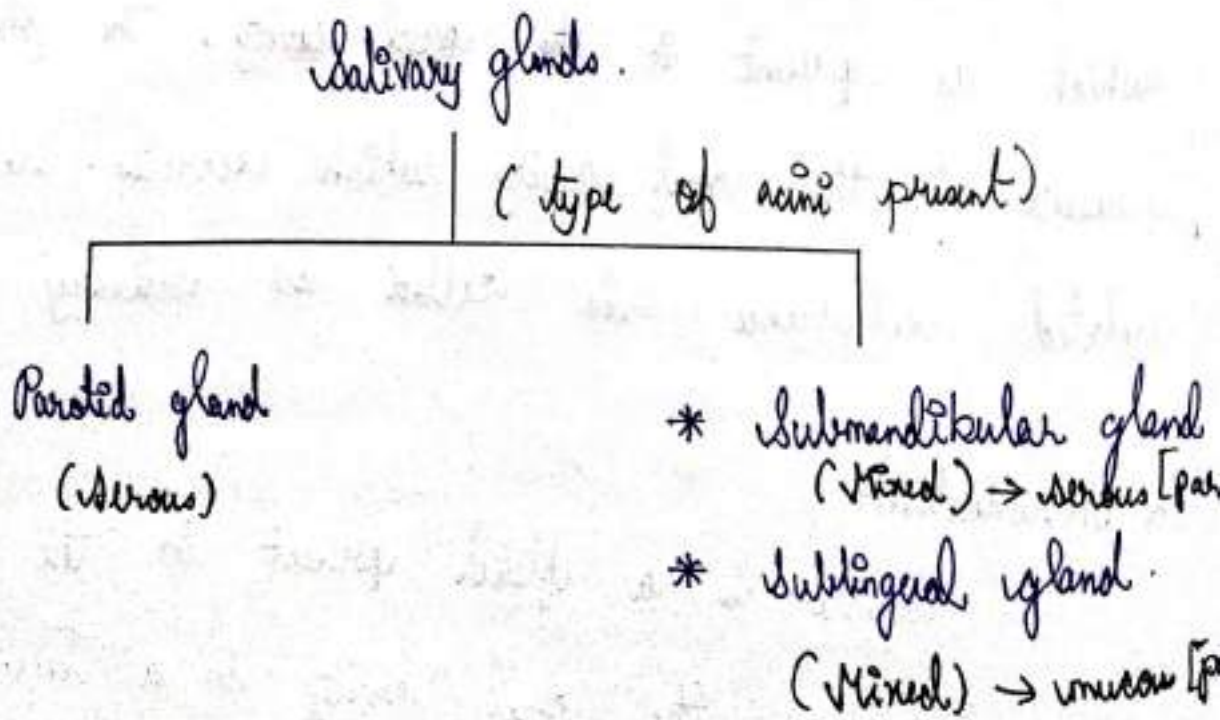 Salivary glands.
(type of acini present)
Parotid gland
(Serous)
* Submandibular gland
(Mixed) → serous [par
* Sublingual gland.
(Mixed) → mucous [p